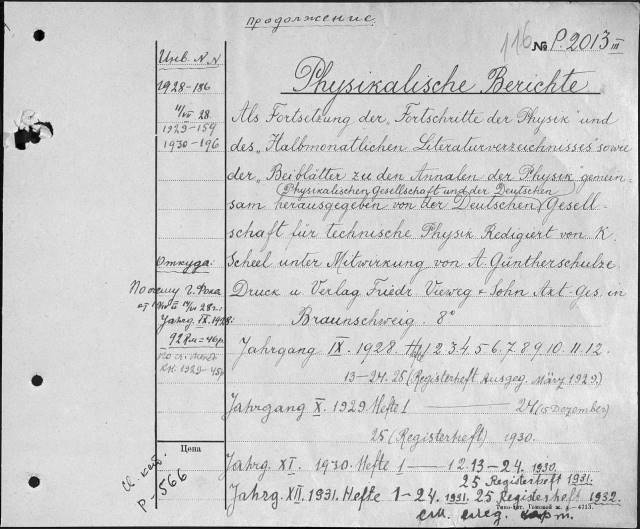 продолжение.
116 № P. 2013 III
Инв. N.N
1928-186
11/VII 28.
1929-154
1930-196
Physikalische Berichte
Als Fortsetzung der „Fortschritte der Physik" und
des „Halbmonatlichen Literaturverzeichnisses" sowie
der „Beiblätter zu den Annalen der Physik" gemein-
Physikalischen Gesellschaft und der Deutschen
sam herausgegeben von der Deutschen Gesell-
schaft für technische Physik Redigiert von K.
Откуда:
Scheel unter Mitwirkung von A. Güntherschulze.
Druck u Verlag Friedr. Vieweg & Sohn Akt-Ges. in
Braunschweig. 8°
По счету
28 г.:
Jahrg. IX. 1928:
92 Rm = 46 р.
кн. 1929-45 р
Jahrgang IX. 1928. Heft 1 2. 3. 4. 5. 6. 7. 8. 9. 10. 11. 12.
13-24. 25 (Registerheft Ausgeg. März 1929.)
Jahrgang X. 1929. Hefte 1 — 24 (15 Dezember)
25 (Registerheft) 1930.
Цена
Jahrg. XI. 1930. Hefte 1 — 12. 13-24. 1930.
25 Registerheft 1931.
Jahrg. XII. 1931. Hefte 1-24. 1931. 25 Registerheft 1932.
P-566
4713.
см. след. карт.